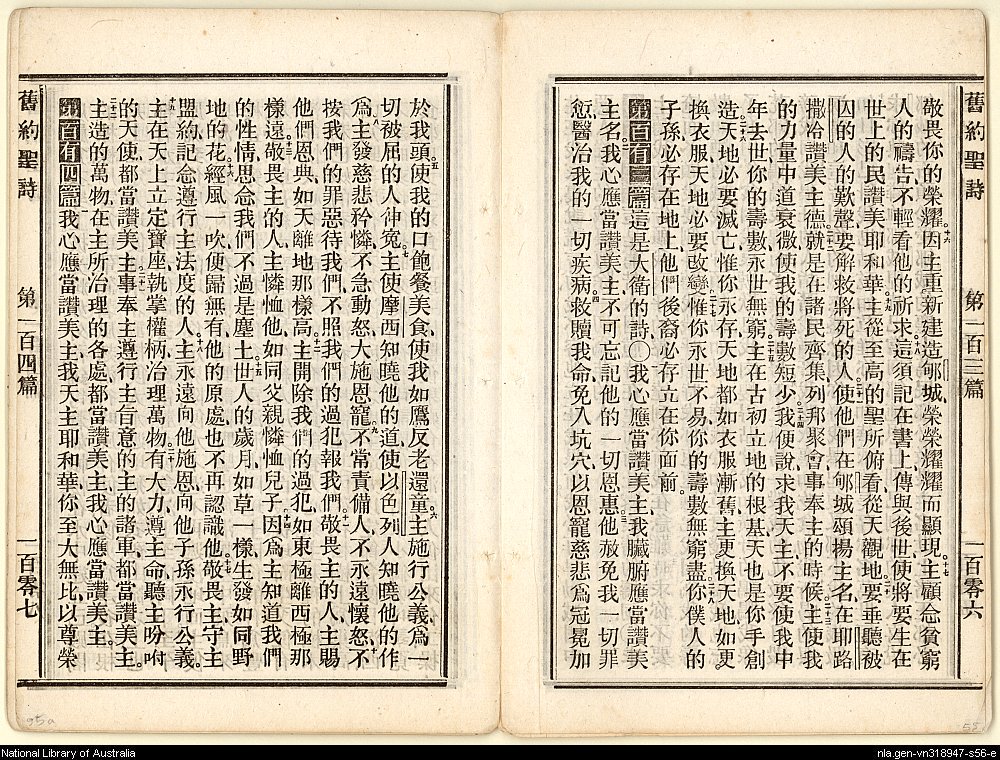 舊約聖詩 第一百三篇 一百零六
敬畏你的榮耀十六因主重新建造郇城榮榮耀耀而顯現十七主顧念貧窮
人的禱告不輕看他的祈求十八這須記在書上傳與後世使將要生在
世上的民讚美耶和華十九主從至高的聖所俯看從天觀地二十要垂聽被
囚的人的歎聲要解救將死的人二十一使他們在郇城頌揚主名在耶路
撒冷讚美主德二十二就是在諸民齊集列邦聚會事奉主的時候二十三主使我
的力量中道衰微使我的壽數短少二十四我便說求我天主不要使我中
年去世你的壽數永世無窮二十五主在古初立地的根基天也是你手創
造二十六天地必要滅亡惟你永存天地都如衣服漸舊主更換天地如更
換衣服天地必要改變二十七惟你永世不易你的壽數無窮盡二十八你僕人的
子孫必存在地上他們後裔必存立在你面前
第百有三篇這是大衛的詩〇一我心應當讚美主我臟腑應當讚美
主名二我心應當讚美主不可忘記他的一切恩惠三他赦免我一切罪
愆醫治我的一切疾病四救贖我命免入坑穴以恩寵慈悲爲冠冕加
於我頭五使我的口飽餐美食使我如鷹反老還童六主施行公義爲一
切被屈的人伸寃七主使摩西知曉他的道使以色列人知曉他的作
爲八主發慈悲矜憐不急動怒大施恩寵九不當責備人不永遠懷怒十不
按我們的罪惡待我們不照我們的過犯報我們十一敬畏主的人主賜
他們恩典如天離地那樣高十二主開除我們的過犯如東極離西極那
樣遠十三敬畏主的人主憐恤他如同父親憐恤兒子十四因爲主知道我們
的性情思念我們不過是塵土十五世人的歲月如草一樣生發如同野
地的花十六經風一吹便歸無有他的原處也不再認識他十七敬畏主守主
盟約記念遵行主法度的人主永遠向他施恩向他子孫永行公義
十九主在天上立定寶座執掌權柄治理萬物二十有大力遵主命聽主吩咐
的天使都當讚美主二十一事奉主遵行主旨意的主的諸軍都當讚美主
二十二主造的萬物在主所治理的各處都當讚美主我心應當讚美主
第百有四篇我心應當讚美主我天主耶和華你至大無比以尊榮
舊約聖詩 第一百四篇 一百零七
95a
58
National Library of Australia
nla.gen-vn318947-s56-e